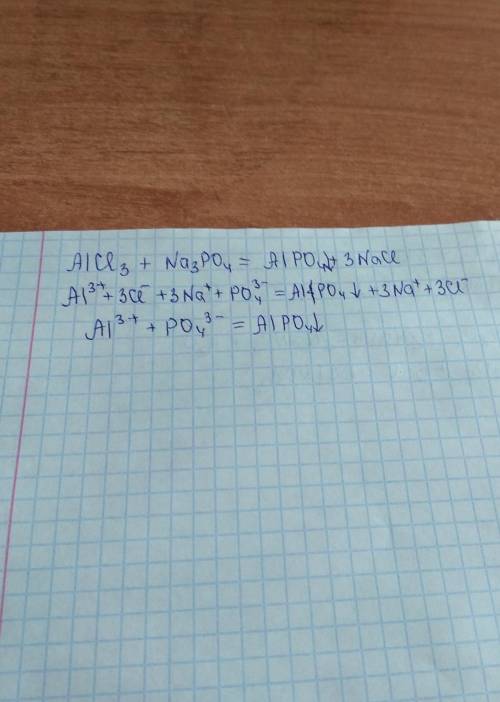 AlCl₃ + Na₃PO₄ = AlPO₄↓ + 3NaCl
Al³⁺ + 3Cl⁻ + 3Na⁺ + PO₄³⁻ = AlPO₄↓ + 3Na⁺ + 3Cl⁻
Al³⁺ + PO₄³⁻ = AlPO₄↓